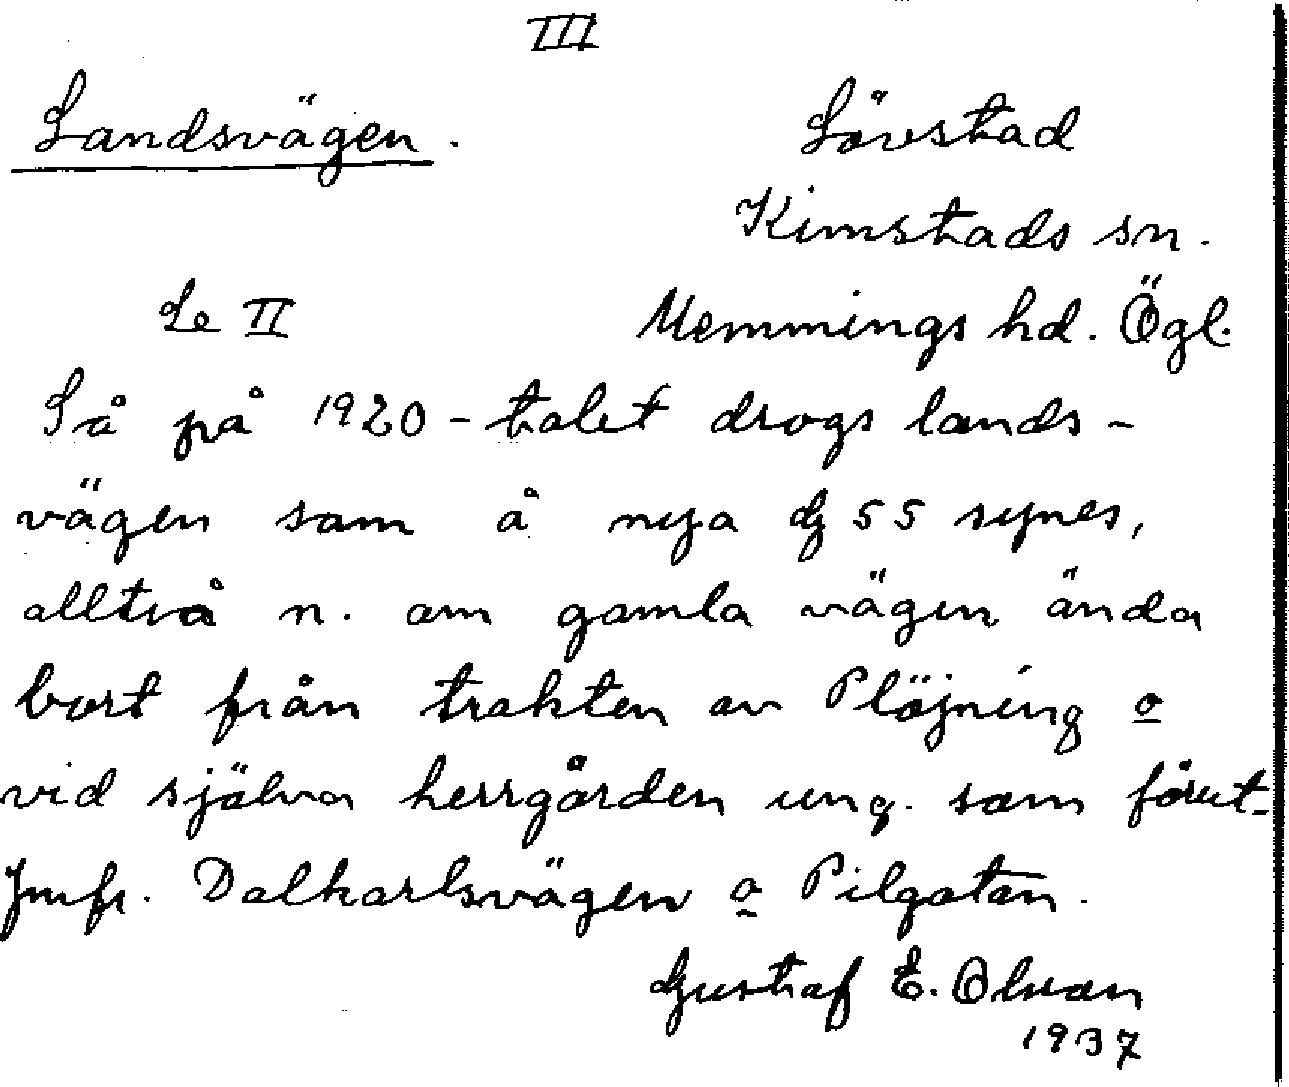 III
Landsvägen.
Lövstad
Kimstads sn.
Se II
Memmings hd. Ögl.
Så på 1920-talet drogs lands-
vägen som å nya G 55 synes,
alltså n. om gamla vägen ända
bort från trakten av Plöjning o
vid själva herrgården ung. som förut.
Jmfr. Dalkarlsvägen o Pilgatan.
Gustaf E. Olsson
1937